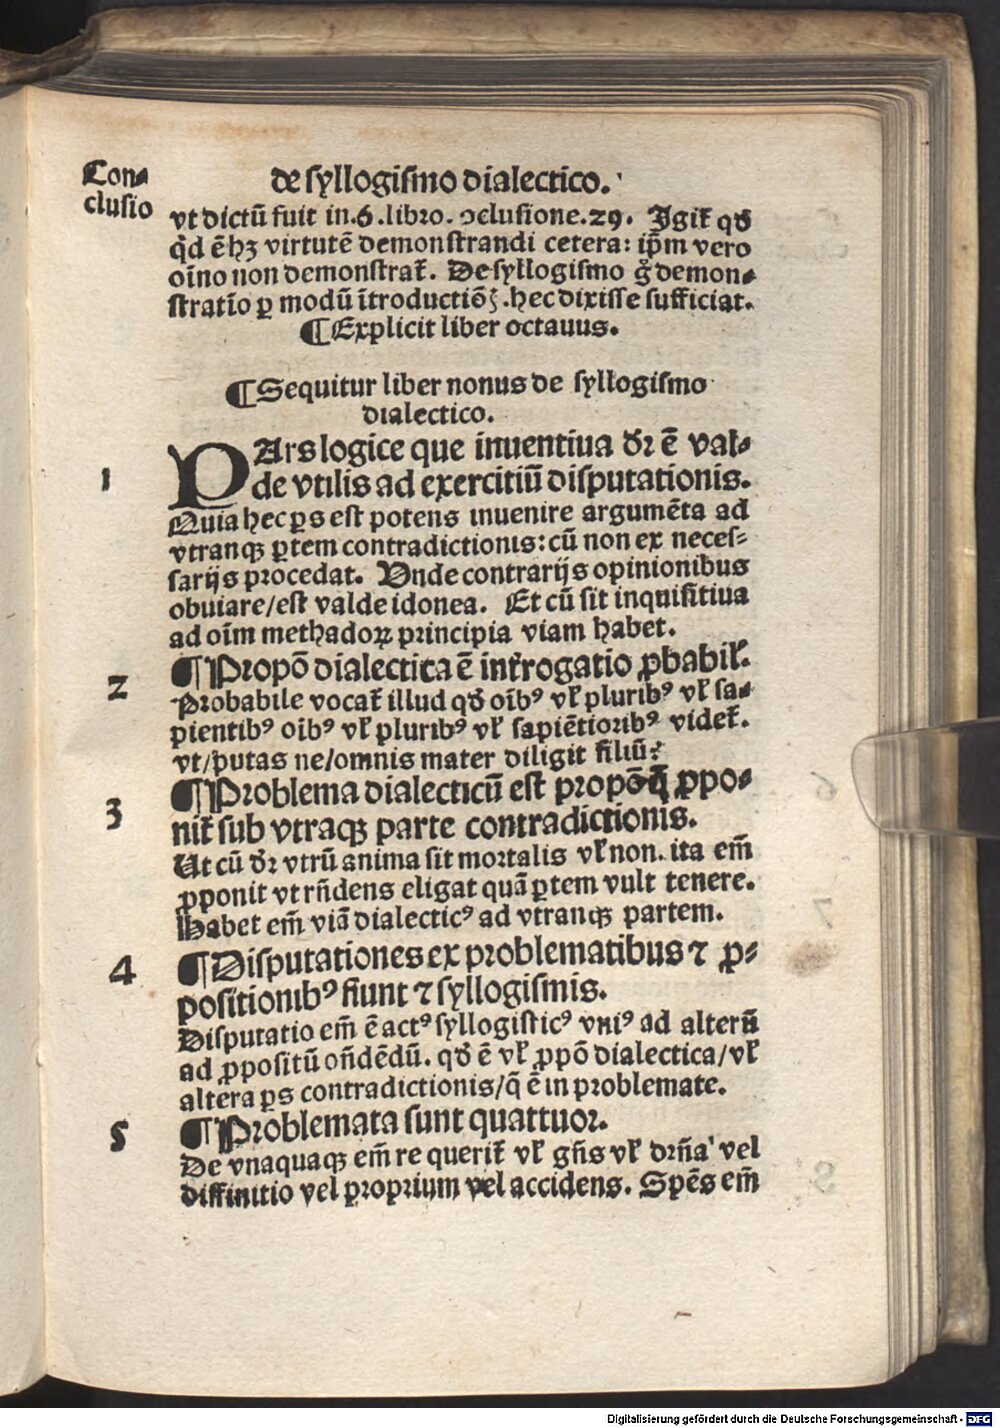 Con⸗
clusio
de syllogismo dialectico.
vt dictū fuit in.6.libro.ↄclusione.29. Igit̄ qđ
q̇d ē hꝫ virtutē demonstrandi cetera: ip̄m vero
oīno non demonstrat̄. De syllogismo g̊ demon⸗
stratīo ꝑ modū ītroductiōꝫ.hec dixisse sufficiat.
¶Explicit liber octauus.
¶Sequitur liber nonus de syllogismo
dialectico.
1
PArs logice que inuentiua đr ē val⸗
de vtilis ad exercitiū disputationis.
Quia hec ꝑs est potens inuenire argumēta ad
vtranqꝫ ꝑtem contradictionis: cū non ex neces⸗
sarijs procedat. Vnde contrarijs opinionibus
obuiare/est valde idonea. Et cū sit inquisitiua
ad oīm methadoꝝ principia viam habet.
2
¶Propō dialectica ē int̄rogatio ꝓbabil̄.
Probabile vocat̄ illud qđ oībꝰ vl̄ pluribꝰ vl̄ sa⸗
pientibꝰ oibꝰ vl̄ pluribꝰ vl̄ sapiētioribꝰ videt̄.
vt/putas ne/omnis mater diligit filiū?
3
¶Problema dialecticū est propō q̄ ꝓpo⸗
nit̄ sub vtraqꝫ parte contradictionis.
Ut cū đr vtrū anima sit mortalis vl̄ non. ita em̄
ꝓponit vt rn̄dens eligat quā ꝑtem vult tenere.
Habet em̄ viā dialecticꝰ ad vtranqꝫ partem.
4
¶Disputationes ex problematibus ⁊ ꝓ⸗
positionibꝰ fiunt ⁊ syllogismis.
Disputatio em̄ ē actꝰ syllogisticꝰ vniꝰ ad alterū
ad ꝓpositū on̄dēdū. qđ ē vl̄ ꝓpō dialectica/vl̄
altera ꝑs contradictionis/q̄ ē in problemate.
5
¶Problemata sunt quattuor.
De vnaquaqꝫ em̄ re querit̄ vl̄ gn̄s vl̄ drn̄a vel
diffinitio vel proprium vel accidens. Spēs em̄
Digitalisierung gefördert durch die Deutsche Forschungsgemeinschaft - DFG